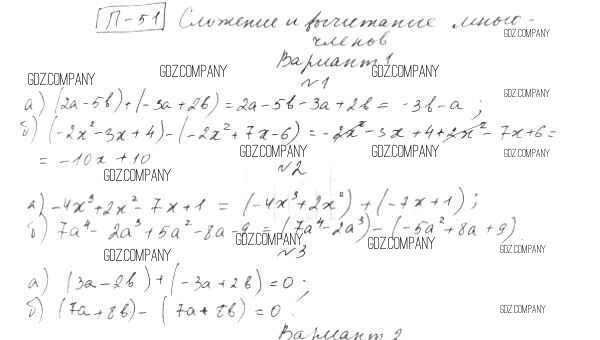 П-51 Сложение и вычитание много-
членов
GDZ.COMPANY
Вариант 1
GDZ.COMPANY GDZ.COMPANY GDZ.COMPANY
№1
GDZ.COMPANY
а) (2a-5b)+(-3a+2b)=2a-5b-3a+2b= -3b-a;
б) (-2x²-3x+4)-(-2x²+7x-6)=-2x²-3x+4+2x²-7x+6=
= -10x+10
GDZ.COMPANY GDZ.COMPANY GDZ.COMPANY
№2
GDZ.COMPANY
а) -4x³+2x²-7x+1 = (-4x³+2x²)+(-7x+1);
б) 7a⁴-2a³+5a²-8a-9=(7a⁴-2a³)-(-5a²+8a+9)
GDZ.COMPANY GDZ.COMPANY GDZ.COMPANY
№3
GDZ.COMPANY
а) (3a-2b)+(-3a+2b)=0;
б) (7a+8b)-(7a+8b)=0.
GDZ.COMPANY
Вариант 2